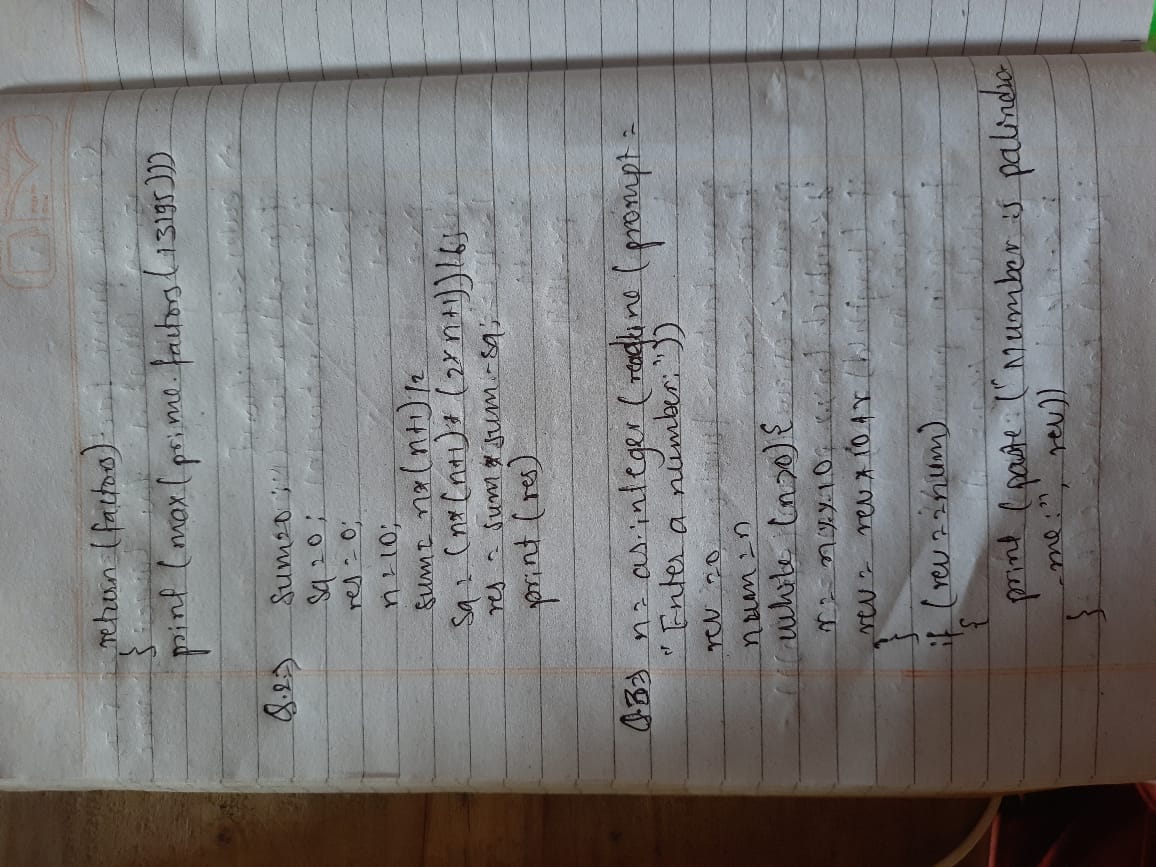 return (factors)
}
print (max (prime.factors (13195)))
Q.2) sum=0;
sq=0;
res=0;
n=10;
sum= n*(n+1)/2
sq= (n*(n+1)*(2*n+1))/6;
res = sum*sum-sq;
print (res)
Q.3) n= as.integer (readline (prompt =
"Enter a number:"))
rev=0
num=n
while (n>0){
r= n%%10
rev= rev*10+r
}
if (rev==num)
{
print (paste ("Number is palindro
-me:", rev))
}